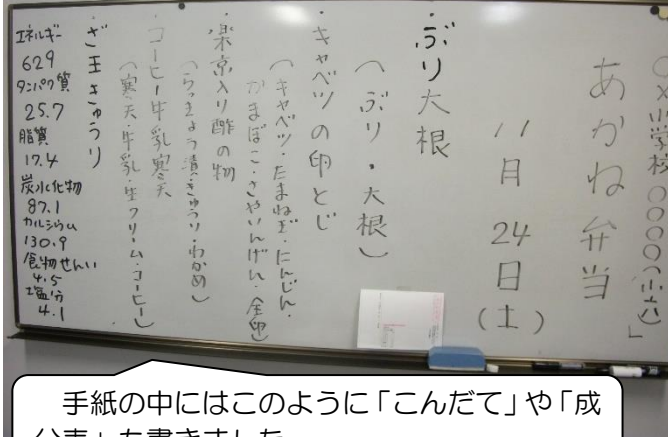 ○×小学校 ○○○○(小六)」
あかね弁当
11月24日(土)
・ぶり大根
(ぶり・大根)
・キャベツの卵とじ
(キャベツ・たまねぎ・にんじん・
かまぼこ・さやいんげん・全卵)
・楽京入り酢の物
(らっきょう漬・きゅうり・わかめ)
・コーヒー牛乳寒天
(寒天・牛乳・生クリーム・コーヒー)
・ざ王きゅうり
エネルギー
629
タンパク質
25.7
脂質
17.4
炭水化物
87.1
カルシウム
130.9
食物せんい
4.5
塩分
4.1
手紙の中にはこのように「こんだて」や「成